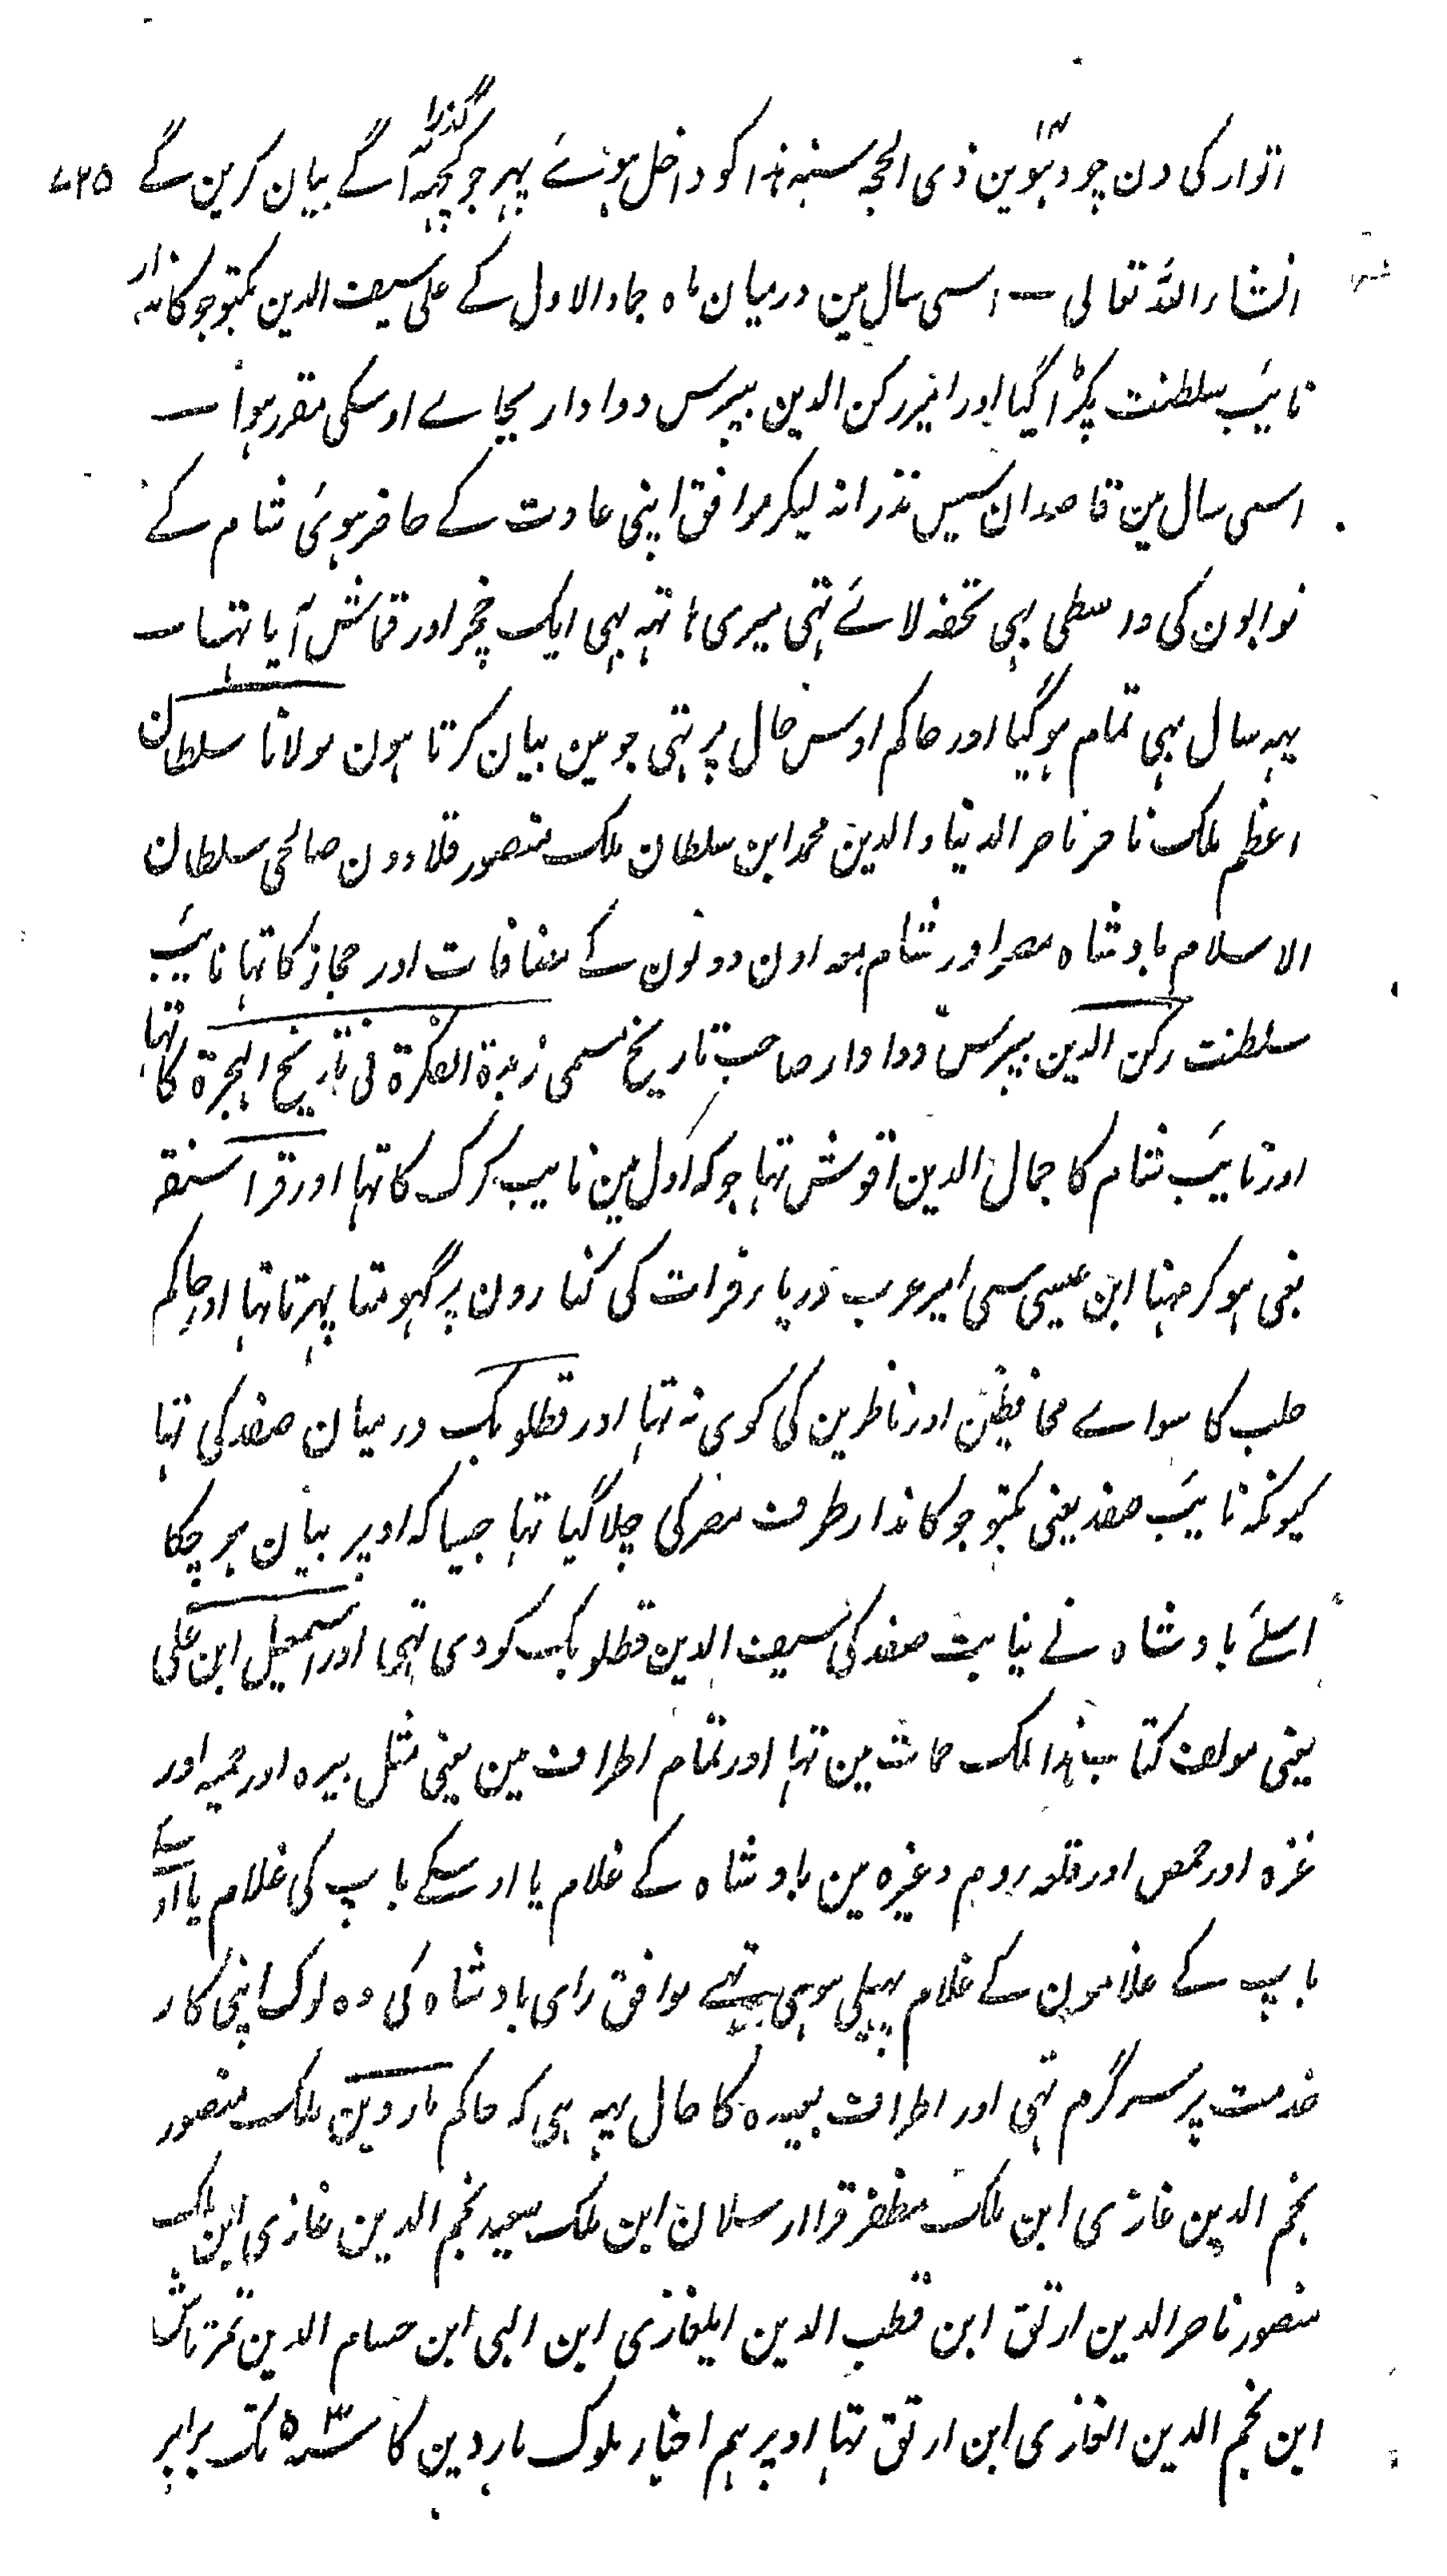 اتوار کی دن چودہوین ۱۴ ذی الحجہ سنہ ہذا کو داخل ہوئے پہر جو کچھہ گذرا آگے بیان کرین گے ۷۲۵
انشاء اللہ تعالی — اسی سال مین درمیان ماہ جماد الاول کے علی سیف الدین بکتوجوکاندار
نائب سلطنت پکڑا گیا اور امیر رکن الدین بیبرس دوادار بجاے اوسکی مقرر ہوا —
اسی سال مین قاصدان سیس نذرانہ لیکر موافق اپنی عادت کے حاضر ہوئی شام کے
نوابون کی واسطی بہی تحفہ لائے تہی میری ہاتہہ بہی ایک خچر اور قماش آیا تہا —
یہہ سال بہی تمام ہو گیا اور حاکم اوس حال پر تہی جو مین بیان کرتا ہون مولانا سلطان
اعظم ملک ناصر ناصر الدنیا والدین محمد ابن سلطان ملک منصور قلاوون صالحی سلطان
الاسلام بادشاہ مصر اور شام معہ اون دونون کے مضافات اور حجاز کا تہا نائب
سلطنت رکن الدین بیبرس دوادار صاحب تاریخ مسمی زبدۃ الفکرۃ فی تاریخ الہجرۃ کا تہا
اور نائب شام کا جمال الدین اقوش تہا جو کہ اول مین نایب کرک کا تہا اور قراسنقر
بغی ہو کر مہنا ابن عیسی سمی امیر عرب دریاء فرات کی کنارون پر گہومتا پہرتا تہا اور حاکم
حلب کا سواے محافظین اور ناظرین کی کوی نہ تہا اور قطلوبک درمیان صفد کی تہا
کیونکہ نائب صفد یعنی بکتوجوکاندار طرف مصر کی چلا گیا تہا جیسا کہ اوپر بیان ہو چکا
اسلئے بادشاہ نے نیابت صفد کی سیف الدین قطلوبک کو دی تہی اور اسمعیل ابن علی
یعنی مولف کتاب ہذا ملک حمات مین تہا اور تمام اطراف مین یعنی مثل بیرہ اور حمیہ اور
غزہ اور حمص اور قلعہ روم وغیرہ مین بادشاہ کے غلام یا اوسکے باپ کی غلام یا اوسکے
باپ کے غلامون کے غلام پہیلی ہوہی تہے موافق رای بادشاہ کی وہ لوگ اپنی کار
خدمت پر سرگرم تہی اور اطراف بعیدہ کا حال یہہ ہی کہ حاکم ماردین ملک منصور
نجم الدین غازی ابن ملک مظفر قرا ارسلان ابن ملک سعید نجم الدین غازی ابن ملک
منصور ناصر الدین ارتق ابن قطب الدین ایلغازی ابن البی ابن حسام الدین تمرتاش
ابن نجم الدین الغازی ابن ارتق تہا اوپر ہم اخبار ملوک ماردین کا تک برابر